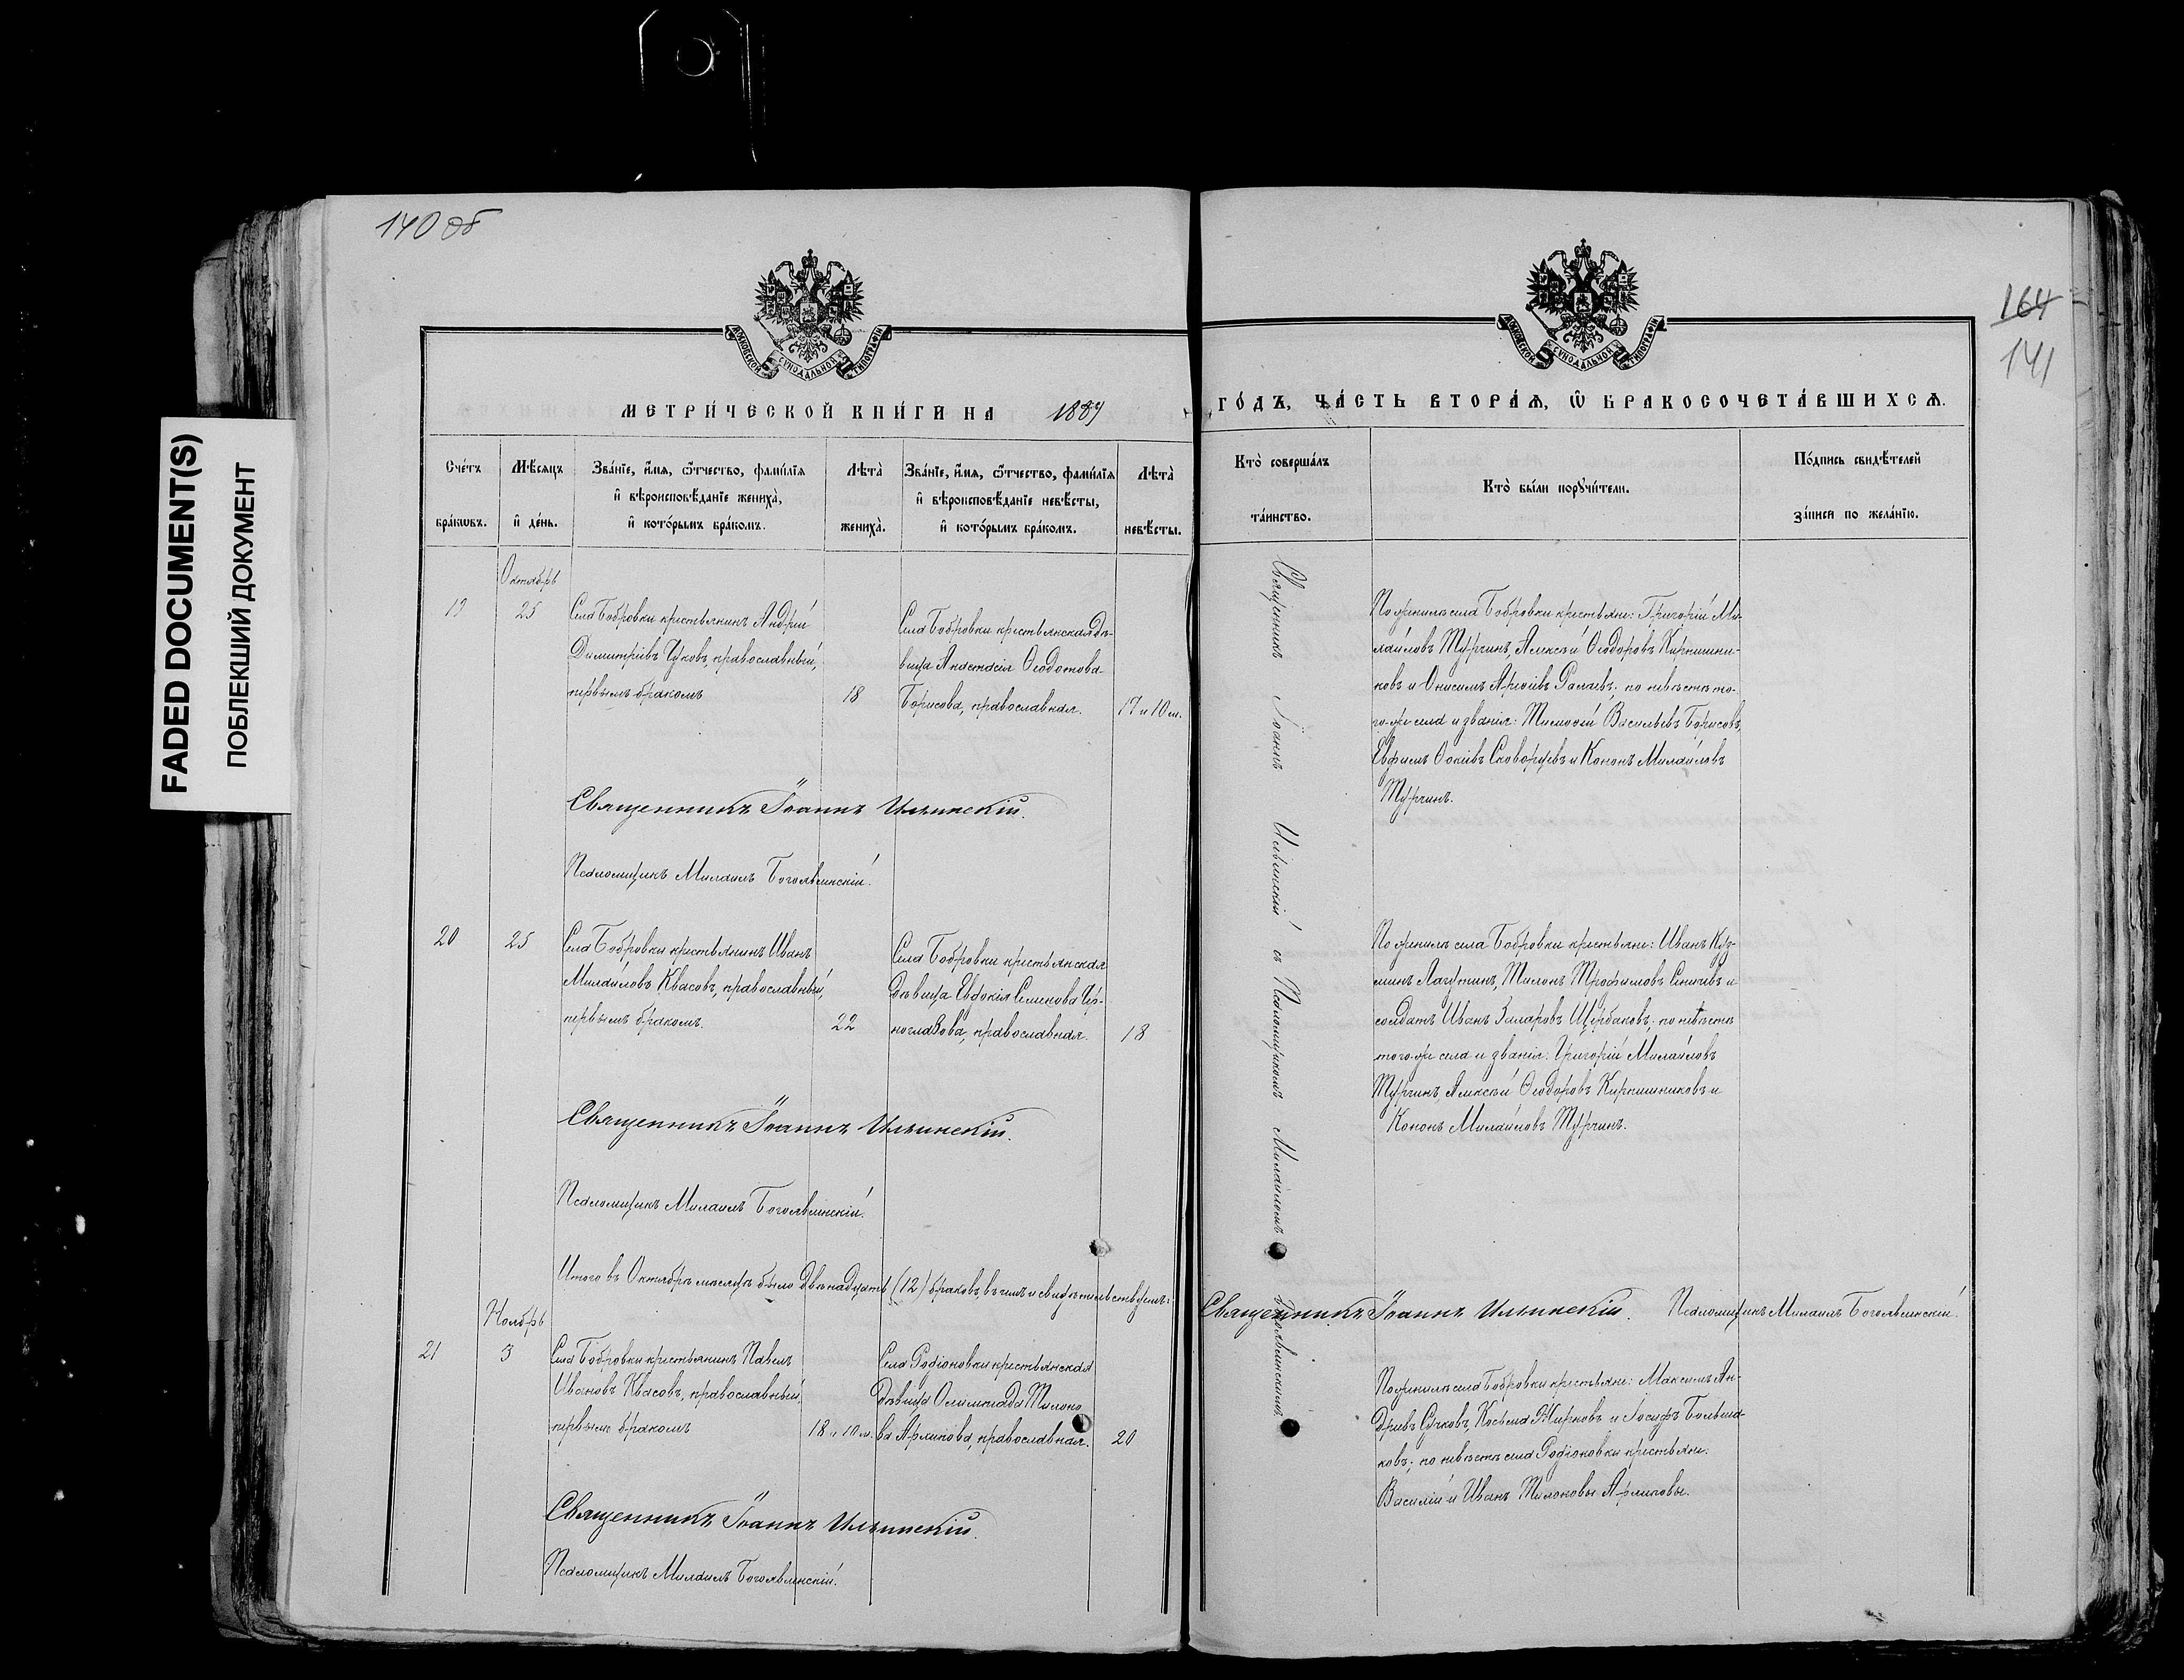 140 об
164
141
FADED DOCUMENT(S)
ПОБЛЕКШИЙ ДОКУМЕНТ
МОСКОВСКОЙ СУНОДАЛЬНОЙ ТИПОГРАФІИ
МОСКОВСКОЙ СУНОДАЛЬНОЙ ТИПОГРАФІИ
МЕТРИ́ЧЕСКОЙ КНИ́ГИ НА 1889
ГО́ДЪ, ЧА́СТЬ ВТОРА́Ѧ, Ѡ҆ БРАКОСОЧЕТА́ВШИХСѦ.
Сче́тъ
бра́кѡвъ.
Мѣ́сѧцъ
и҆ де́нь.
Зва́нїе, и҆́мѧ, ѻ҆́тчество, фами́лїѧ
и҆ вѣроисповѣ́данїе жениха̀,
и҆ кото́рымъ бра́комъ.
Лѣта̀
жениха̀.
Зва́нїе, и҆́мѧ, ѻ҆́тчество, фами́лїѧ
и҆ вѣроисповѣ́данїе невѣ́сты,
и҆ кото́рымъ бра́комъ.
Лѣта̀
невѣ́сты.
Кто̀ соверша́лъ
та́инство.
Кто̀ бы́ли порꙋчи́тели.
По́дпись свидѣ́телей
за́писи по жела́нїю.
Октябрь
19
25
Села Бобровки крестьянинъ Андрей
Димитріевъ Чуковъ, православный,
первымъ бракомъ
18
Села Бобровки крестьянская дѣ-
вица Анастасія Ѳеодотова
Борисова, православная.
17 и 10 м.
По женихѣ села Бобровки крестьяне: Григорій Ми-
хайловъ Тургинъ, Алексѣй Ѳеодоровъ Кирпични-
ковъ и Онисимъ; по невѣстѣ то-
го-же села и званія: Тимоѳей Васильевъ Борисовъ,
Евфимъ Скворцевъ и Кононъ Михайловъ
Тургинъ.
Священникъ Іоаннъ Ильинскій.
Псаломщикъ Михаилъ Богоявленскій.
20
25
Села Бобровки крестьянинъ Иванъ
Михайловъ Квасовъ, православный,
первымъ бракомъ.
22
Села Бобровки крестьянская
дѣвица Евдокія Семенова Чер-
ноглазова, православная.
18
По женихѣ села Бобровки крестьяне: Иванъ Куз-
минъ Лагутинъ, Трофимовъ и
солдатъ Иванъ Захаровъ Щербаковъ; по невѣстѣ
того-же села и званія: Григорій Михайловъ
Тургинъ, Алексѣй Ѳеодоровъ Кирпичниковъ и
Кононъ Михайловъ Тургинъ.
Священникъ Іоаннъ Ильинскій.
Псаломщикъ Михаилъ Богоявленскій.
Итого въ Октябрѣ мѣсяцѣ было двѣнадцать (12) браковъ, въ чемъ и свидѣтельствуемъ:
Священникъ Іоаннъ Ильинскій. Псаломщикъ Михаилъ Богоявленскій.
Ноябрь
21
3
Села Бобровки крестьянинъ Павелъ
Ивановъ Квасовъ, православный,
первымъ бракомъ
18 и 10 м.
Села Родіоновки крестьянская
дѣвица Олимпіада Тихоно
ва православная.
20
По женихѣ села Бобровки крестьяне: Максимъ Ан-
дреевъ Сучковъ, Косьма Жирновъ и Іосифъ Больша-
ковъ; по невѣстѣ села Родіоновки крестьяне:
Василій и Иванъ Тихоновы
Священникъ Іоаннъ Ильинскій.
Псаломщикъ Михаилъ Богоявленскій.
Священникъ Іоаннъ Ильинскій съ Псаломщикомъ Михаиломъ Богоявленскимъ.